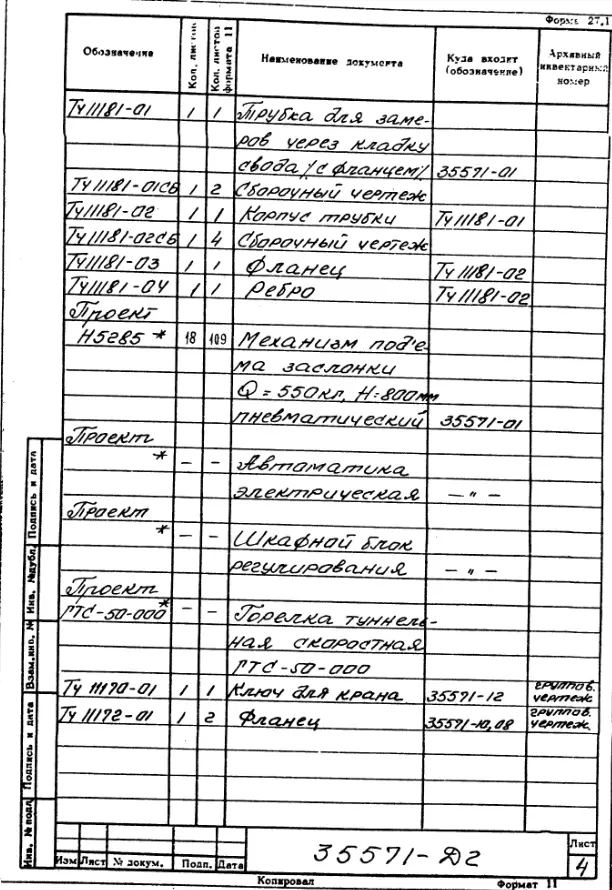 Форма 27.1
Обозначение | Кол. листов | Кол. листов формата 11 | Наименование документа | Куда входит (обозначение) | Архивный инвентарный номер
Ту 11181-01 | 1 | 1 | Трубка для заме-
ров через кладку
свода /с фланцем/ | 35571-01
Ту 11181-01СБ | 1 | 2 | Сборочный чертеж
Ту 11181-02 | 1 | 1 | Корпус трубки | Ту 11181-01
Ту 11181-02СБ | 1 | 4 | Сборочный чертеж
Ту 11181-03 | 1 | 1 | Фланец | Ту 11181-02
Ту 11181-04 | 1 | 1 | Ребро | Ту 11181-02
Проект
Н5285 * | 18 | 109 | Механизм под'е-
ма заслонки
Q = 550кг, H=800мм
пневматический | 35571-01
Проект
* | – | – | Автоматика
электрическая | — " —
Проект
* | – | – | Шкафной блок
регулирования | — " —
Проект
ГТС-50-000* | – | – | Горелка туннель-
ная скоростная
ГТС-50-000
Ту 11170-01 | 1 | 1 | Ключ для крана | 35571-12 | группов. чертеж
Ту 11172-01 | 1 | 2 | Фланец | 35571-10,08 | группов. чертеж.
Подпись и дата
Инв. № дубл.
Взам. инв. №
Подпись и дата
Инв. № подл.
Изм | Лист | № докум. | Подп. | Дата
35571-Д2
Лист
4
Копировал
Формат 11